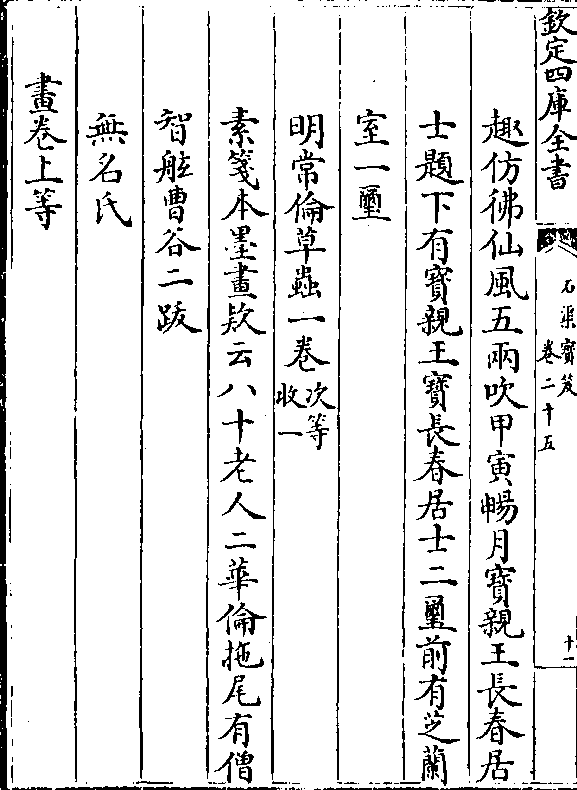 欽定四庫全書
石渠寶笈
卷二十五
十一
趣仿彿仙風五兩吹甲寅暢月寶親王長春居
士題下有寶親王寶長春居士二璽前有芝蘭
室一璽
明常倫草蟲一卷次等
收一
素箋本墨畫欵云八十老人二華倫拖尾有僧
智舷曹谷二跋
無名氏
畫卷上等